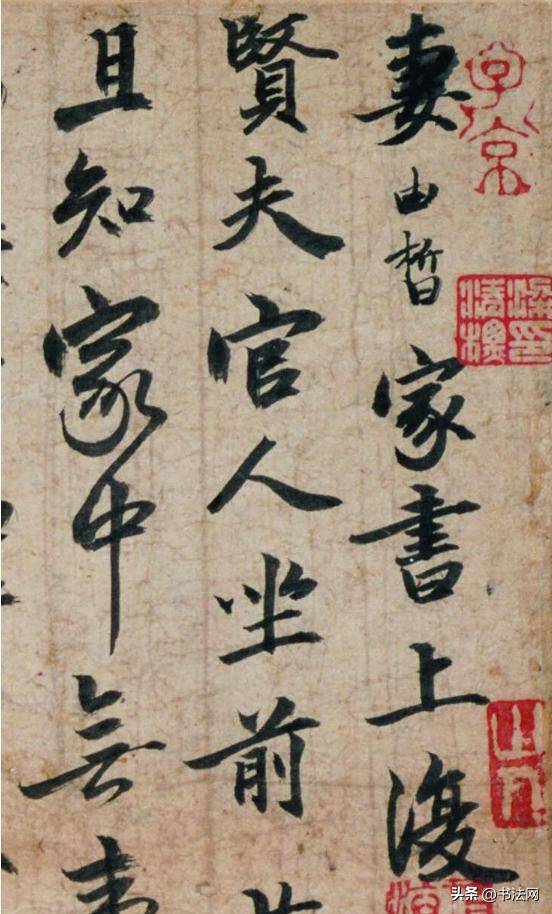 子京
妻由晳家書上復
賢夫官人坐前
且知家中無
头条 @书法网